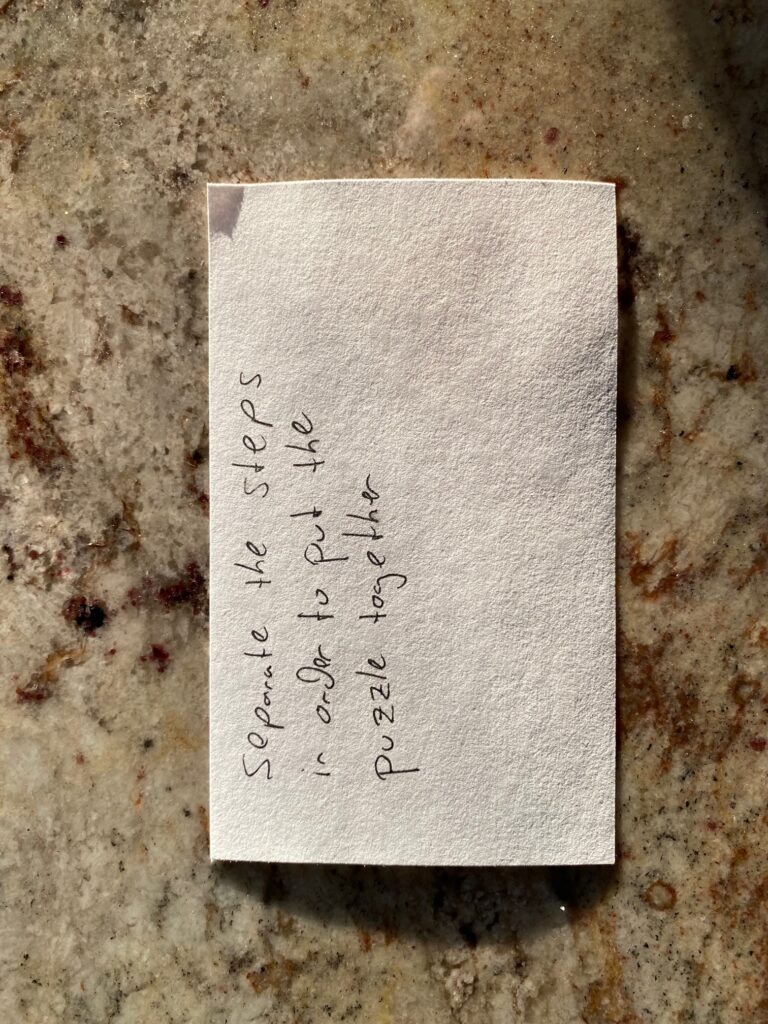 Separate the steps
in order to put the
puzzle together